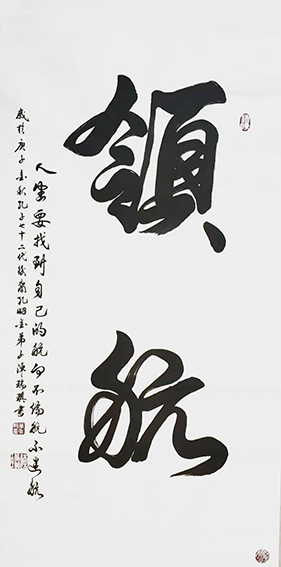 領航
人要找到自己的航向不偏航不迷航
庚子金秋孔子七十二代後裔孔昭金弟子陳瑞琪書